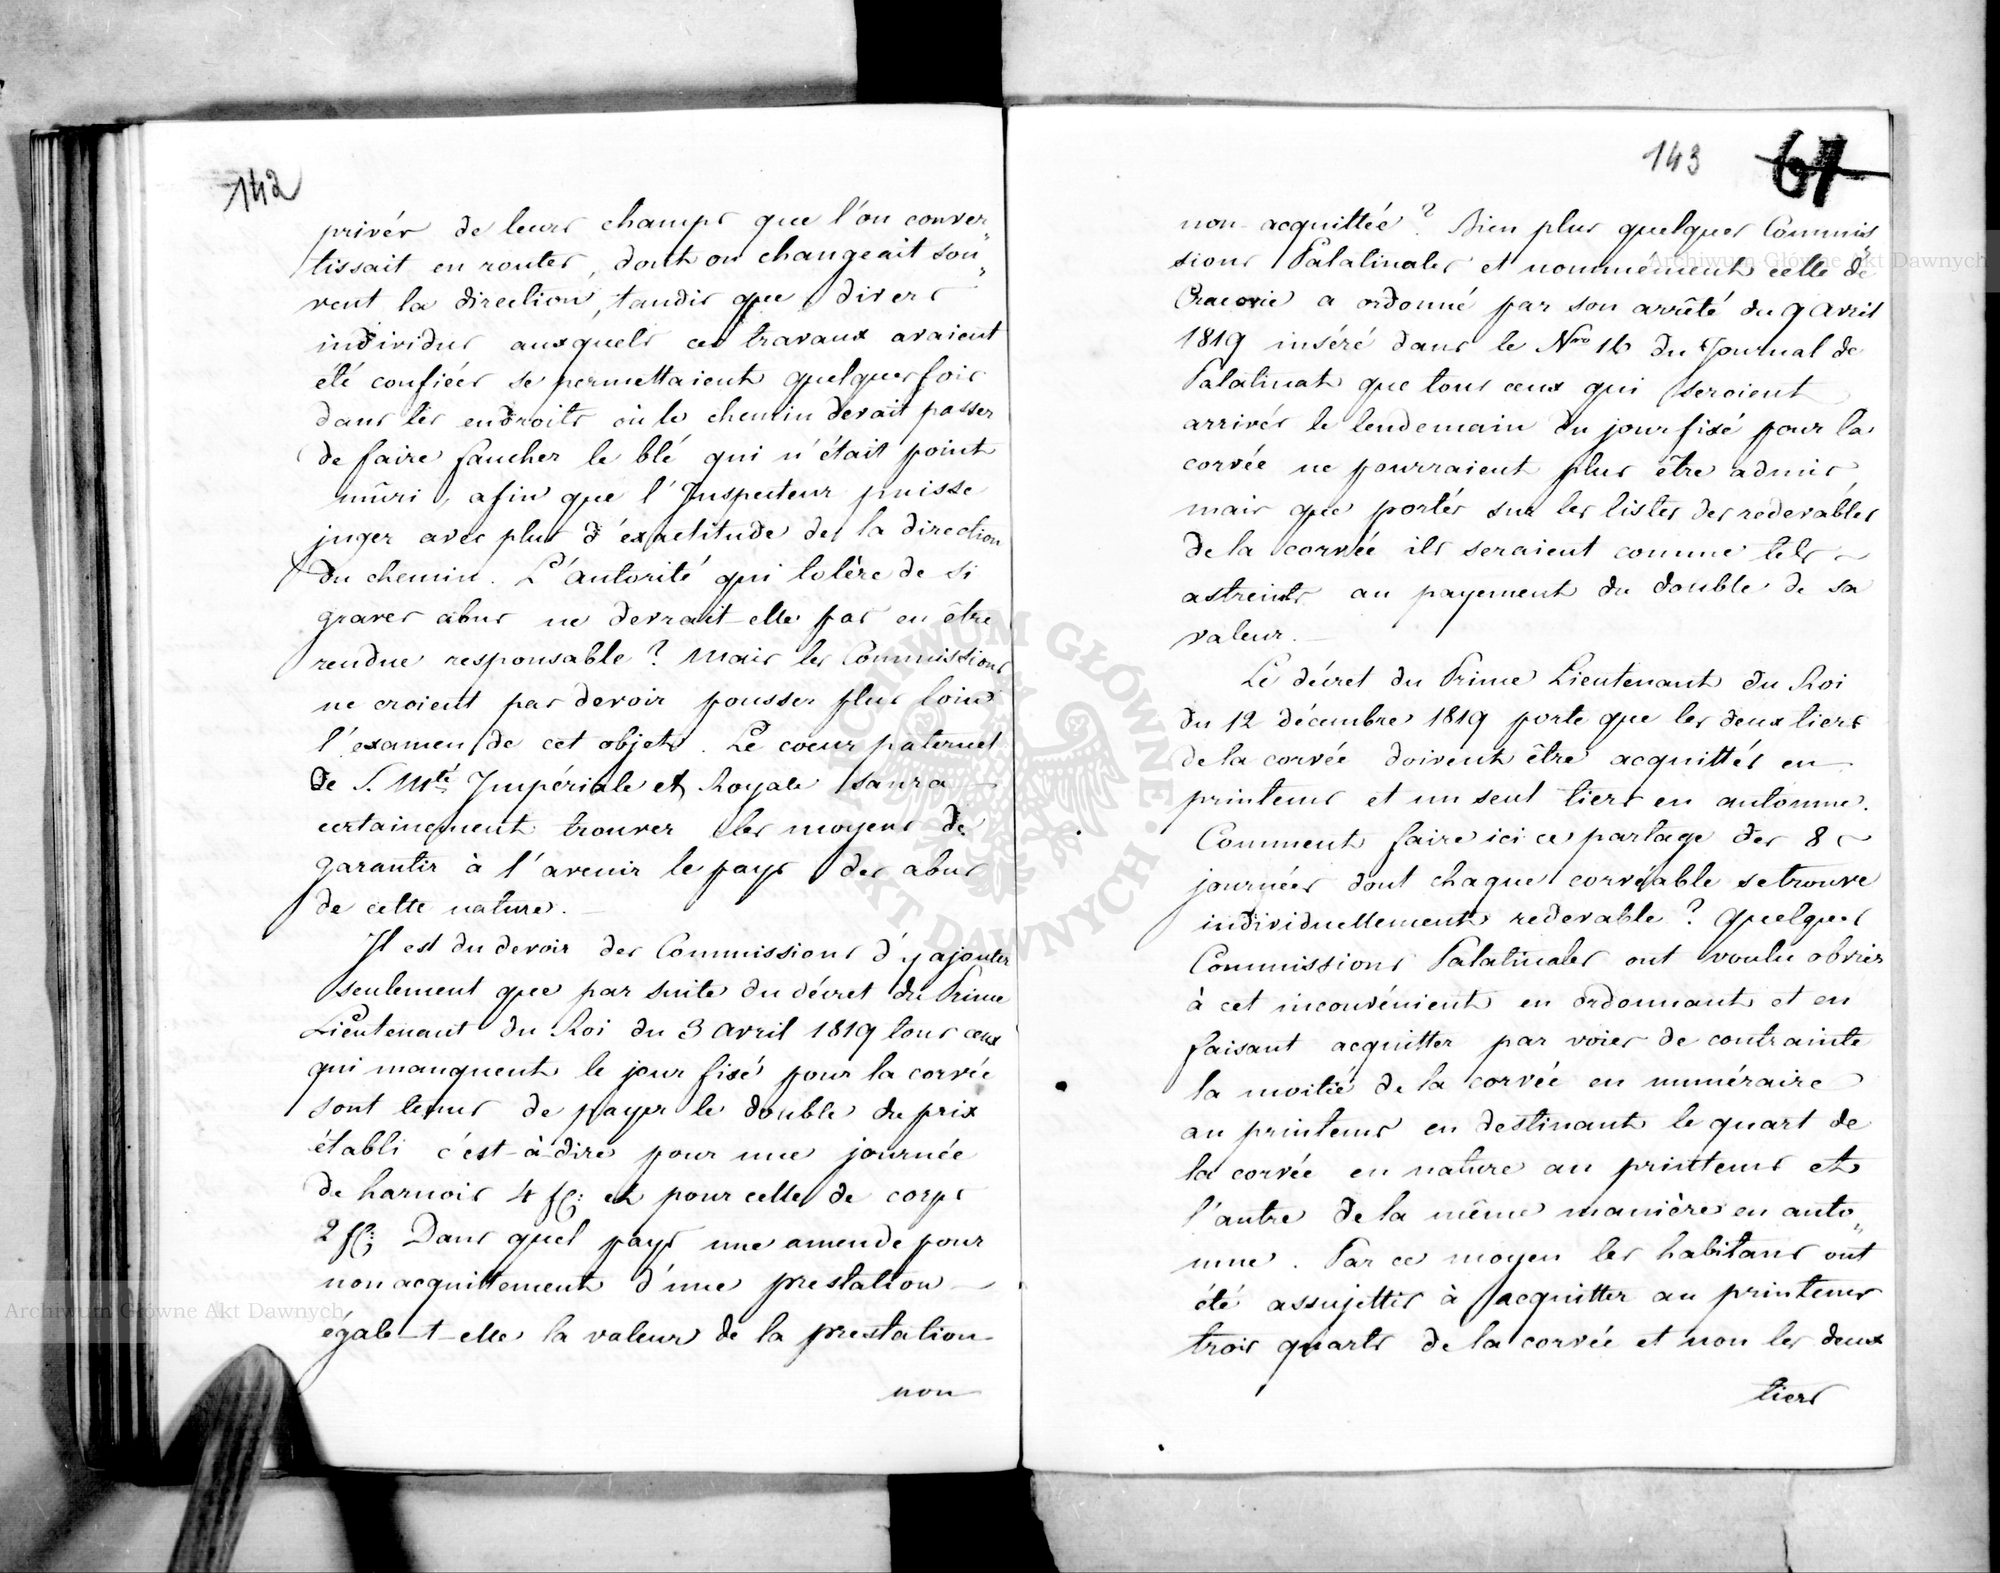 142
privés de leurs champs que l'on conver„
tissait en routes, dont on changeait sou„
vent la direction, tandis que divers
individus auxquels ces travaux avaient
été confiées se permettaient quelquesfois
dans les endroits où le chemin devait passer
de faire faucher le blé qui n'était point
mûri, afin que l'Inspecteur puisse
juger avec plus d'éxactitude de la direction
du chemin. L'autorité qui tolère de si
graves abus ne devrait-elle pas en être
rendue responsable? Mais les Commissions
ne croient pas devoir pousser plus loin
l'examen de cet objet. Le coeur paternel
de S. Mté Impériale et Royale saura
certainement trouver les moyens de
garantir à l'avenir le pays des abus
de cette nature. —
Il est du devoir des Commissions d'y ajouter
seulement que par suite du décret du Prime
Lieutenant du Roi du 3 avril 1819 tous ceux
qui manquent le jour fixé pour la corvée
sont tenus de payer le double du prix
établi c'est-à-dire pour une journée
de harnois 4 fl: et pour celle de corps
2 fl: Dans quel pays une amende pour
non acquittement d'une prestation —
égale-t-elle la valeur de la prestation
non
143 67
non acquittée? Bien plus quelques Commis„
sions Palatinales et nommément celle de
Cracovie a ordonné par son arrêté du 9 Avril
1819 inséré dans le Nro 16 du Journal de
Palatinat que tous ceux qui seroient
arrivés le lendemain du jour fixé pour la
corvée ne pourraient plus être admis
mais que portés sur les listes des redevables
de la corvée ils seraient comme tels ~
astreints au payement du double de sa
valeur. —
Le décret du Prime Lieutenant du Roi
du 12 décembre 1819 porte que les deux tiers
de la corvée doivent être acquittés en
printems et un seul tiers en automne.
Comment faire ici ce partage des 8 ~
journées dont chaque corvéable se trouve
individuellement redevable? Quelques
Commissions Palatinales ont voulu obvier
à cet inconvénient en ordonnant et en
faisant acquitter par voies de contrainte
la moitié de la corvée en numéraire
au printems en destinant le quart de
la corvée en nature au printems et
l'autre de la même manière en auto„
mne. Par ce moyen les habitans ont
été assujettis à acquitter au printems
trois quarts de la corvée et non les deux
tiers
Archiwum Główne Akt Dawnych
Archiwum Główne Akt Dawnych
ARCHIWUM GŁÓWNE AKT DAWNYCH